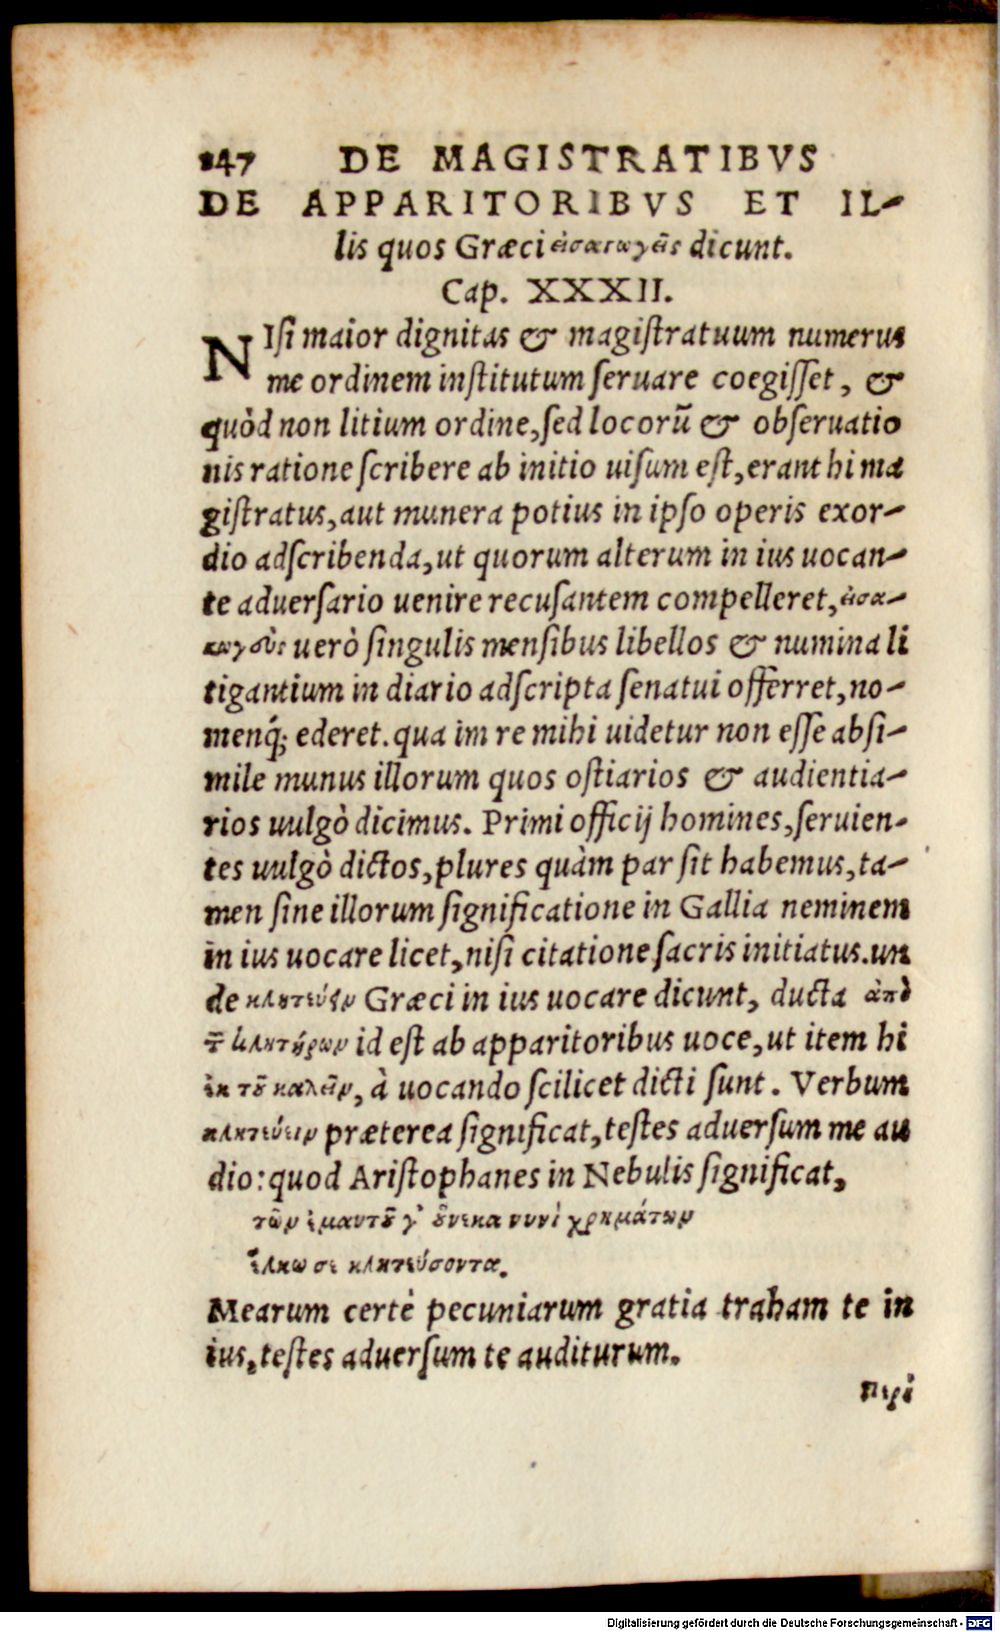 147 DE MAGISTRATIBVS
DE APPARITORIBVS ET IL-
lis quos Græci εἰσαγωγεῖς dicunt.
Cap. XXXII.
NIsi maior dignitas & magistratuum numerus
me ordinem institutum seruare coegisset, &
quòd non litium ordine, sed locorũ & obseruatio
nis ratione scribere ab initio uisum est, erant hi ma
gistratus, aut munera potius in ipso operis exor-
dio adscribenda, ut quorum alterum in ius uocan-
te aduersario uenire recusantem compelleret, εἰσα-
γωγοὺς uerò singulis mensibus libellos & numina li
tigantium in diario adscripta senatui offerret, no-
menq́; ederet. qua im re mihi uidetur non esse absi-
mile munus illorum quos ostiarios & audientia-
rios uulgò dicimus. Primi officij homines, seruien-
tes uulgò dictos, plures quàm par sit habemus, ta-
men sine illorum significatione in Gallia neminem
in ius uocare licet, nisi citatione sacris initiatus. un
de κλητεύειν Græci in ius uocare dicunt, ducta ἀπὸ
τ͂ κλητήρων id est ab apparitoribus uoce, ut item hi
ἐκ τοῦ καλεῖν, à uocando scilicet dicti sunt. Verbum
κλητεύειν præterea significat, testes aduersum me au
dio: quod Aristophanes in Nebulis significat,
τῶν ἐμαυτοῦ γ' οὕνεκα νυνὶ χρημάτων
ἕλκω σε κλητεύσοντα.
Mearum certè pecuniarum gratia traham te in
ius, testes aduersum te auditurum.
Περὶ
Digitalisierung gefördert durch die Deutsche Forschungsgemeinschaft - DFG